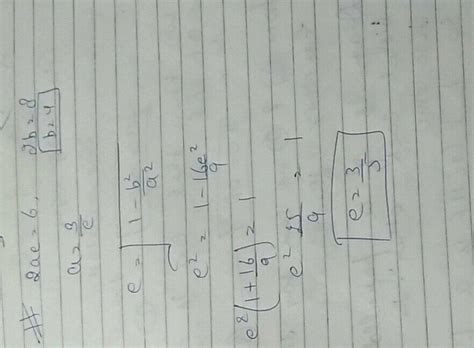 # 2ae = 6, 2b = 8
b = 4
a = 3/e
e = √(1 - b²/a²)
e² = 1 - 16e²/9
e²(1 + 16/9) = 1
e² 25/9 = 1
e = 3/5